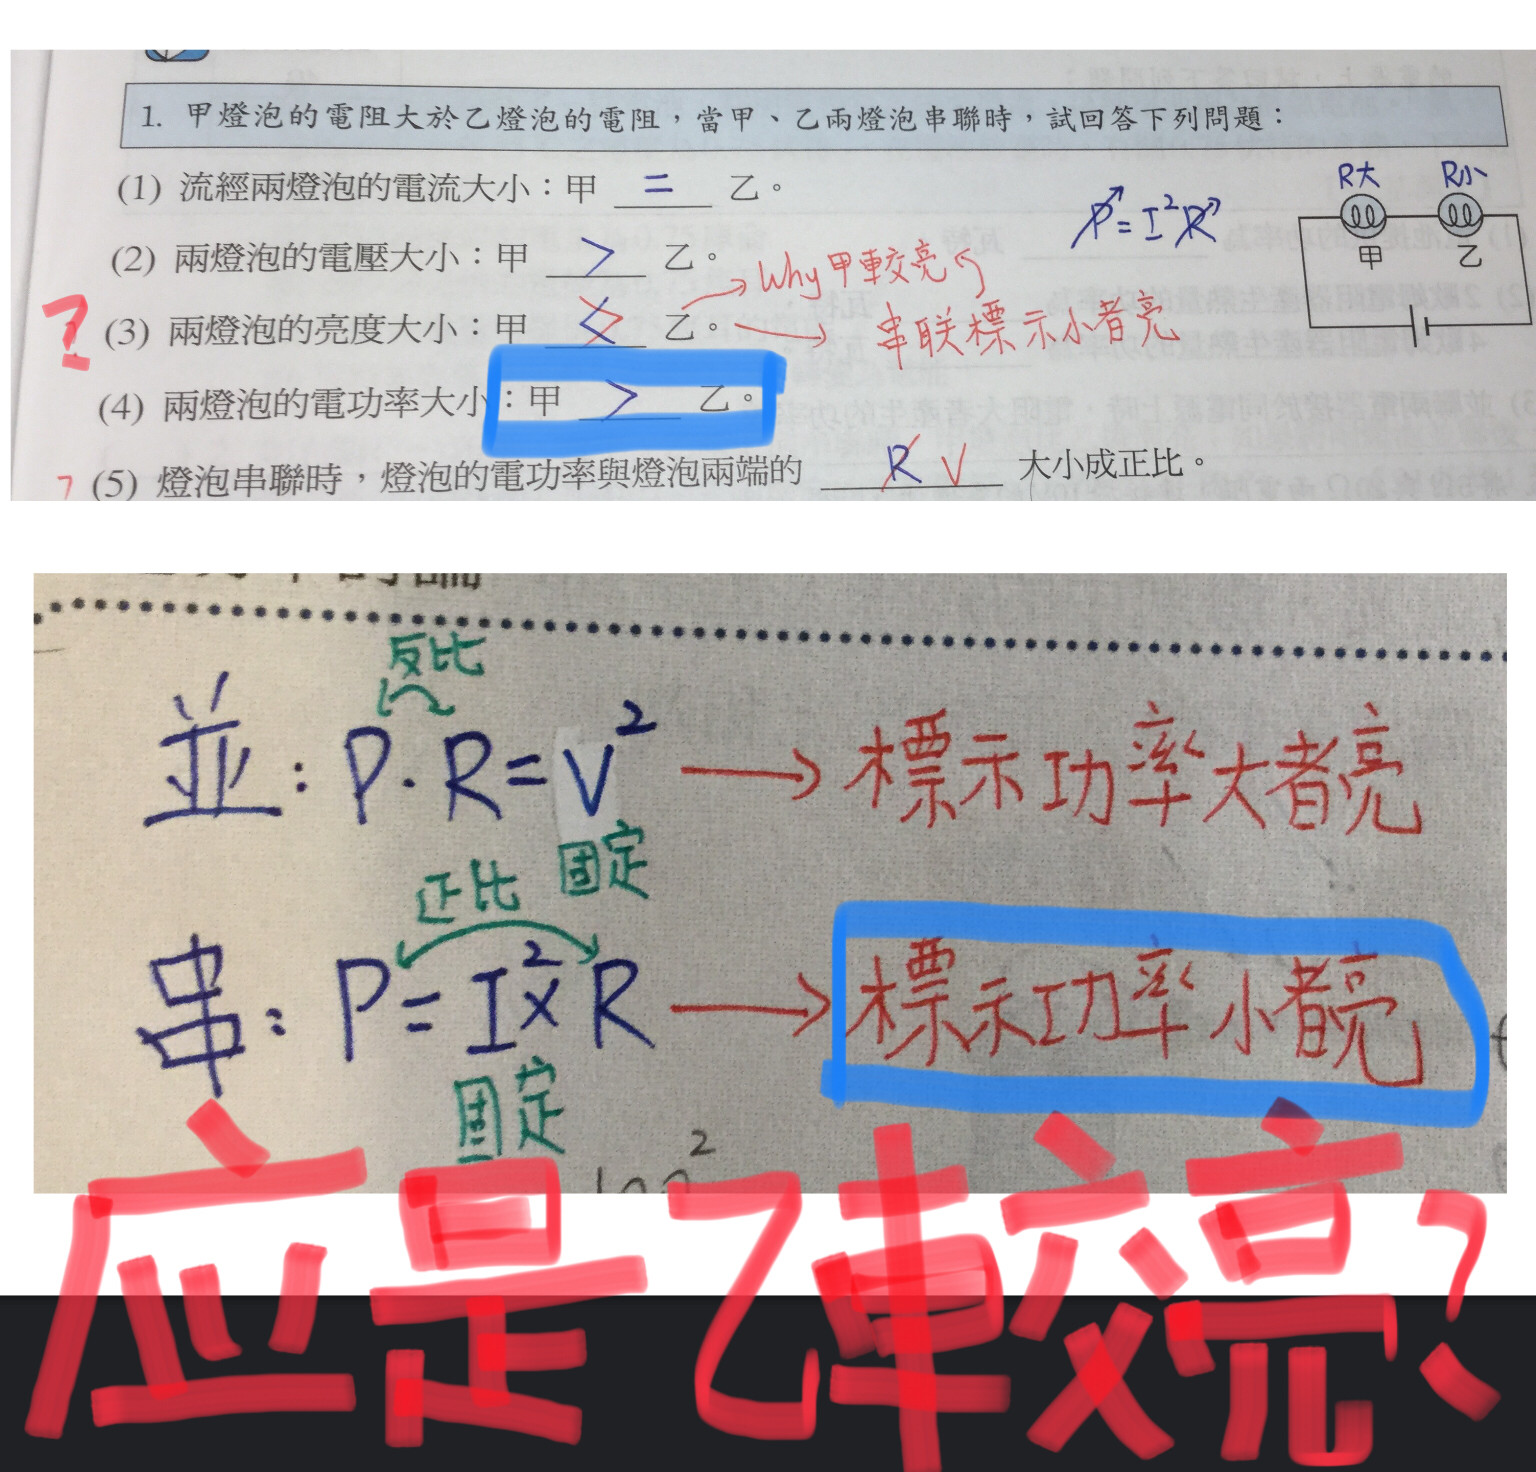 1. 甲燈泡的電阻大於乙燈泡的電阻，當甲、乙兩燈泡串聯時，試回答下列問題：
(1) 流經兩燈泡的電流大小：甲 = 乙。
P=I²R
R大 R小
甲 乙
(2) 兩燈泡的電壓大小：甲 > 乙。
Why 甲較亮
? (3) 兩燈泡的亮度大小：甲 > 乙。
串联標示小者亮
(4) 兩燈泡的電功率大小：甲 > 乙。
? (5) 燈泡串聯時，燈泡的電功率與燈泡兩端的 R V 大小成正比。
反比
並：P·R=V² → 標示功率大者亮
固定
正比
串：P=I²×R → 標示功率小者亮
固定
应是乙較亮?